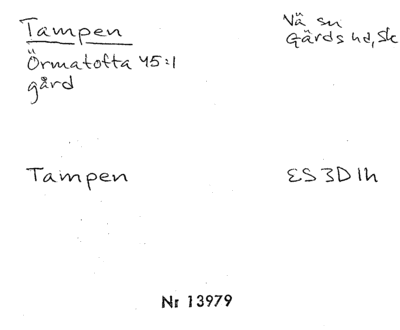 Tampen
Vä sn
Gärds hd, Sk
Örmatofta 45:1
gård
Tampen
ES3D1h
Nr 13979